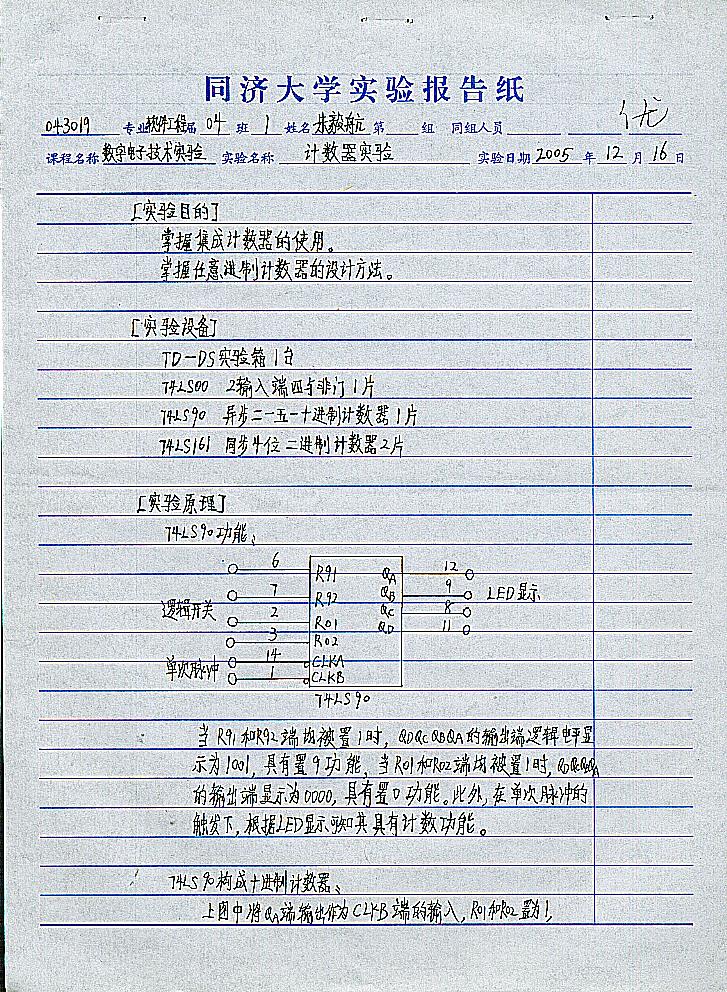 同济大学实验报告纸
优
043019 专业软件工程届 04 班 1 姓名 朱毅航 第 组 同组人员
课程名称 数字电子技术实验 实验名称 计数器实验 实验日期 2005 年 12 月 16 日
[实验目的]
掌握集成计数器的使用。
掌握任意进制计数器的设计方法。
[实验设备]
TD-DS实验箱 1台
74LS00 2输入端四与非门 1片
74LS90 异步二一五一十进制计数器 1片
74LS161 同步4位二进制计数器2片
[实验原理]
74LS90功能、
6 R91 QA 12
7 R92 QB 9 LED显示
逻辑开关 2 R01 QC 8
3 R02 QD 11
单次脉冲 14 CLKA
1 CLKB
74LS90
当R91和R92端均被置1时，QDQCQBQA的输出端逻辑电平显
示为1001，具有置9功能，当R01和R02端均被置1时，QDQCQBQA
的输出端显示为0000，具有置0功能。此外，在单次脉冲的
触发下，根据LED显示可知其具有计数功能。
74LS90构成十进制计数器、
上图中将QA端输出作为CLKB端的输入，R01和R02置为1，